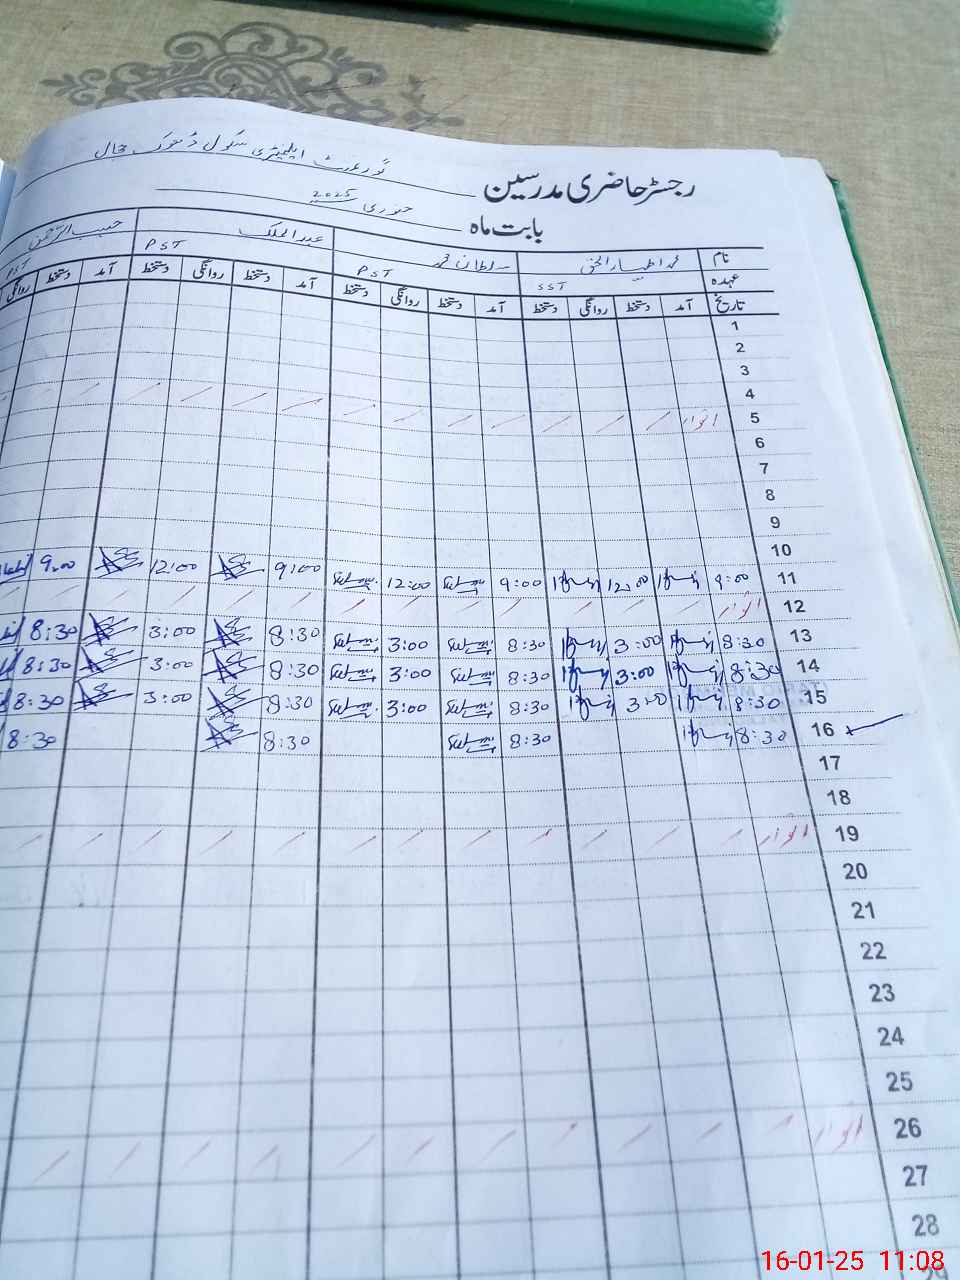 گورنمنٹ ایلیمنٹری سکول
رجسٹر حاضری مدرسین
جنوری 2025
بابت ماہ
نام محمد اظہار الحق سلطان محمد عبدالملک حبیب الرحمن
عہدہ SST PST PST PST
تاریخ آمد دستخط روانگی دستخط آمد دستخط روانگی دستخط آمد دستخط روانگی دستخط آمد دستخط روانگی
1
2
3
4
5 اتوار
6
7
8
9
10
11 9:00 12:00 9:00 12:00 9:00 12:00 9:00
12 اتوار
13 8:30 3:00 8:30 3:00 8:30 3:00 8:30
14 8:30 3:00 8:30 3:00 8:30 3:00 8:30
15 8:30 3:00 8:30 3:00 8:30 3:00 8:30
16 8:30 8:30 8:30 8:30
17
18
19 اتوار
20
21
22
23
24
25
26 اتوار
27
28
29
16-01-25 11:08